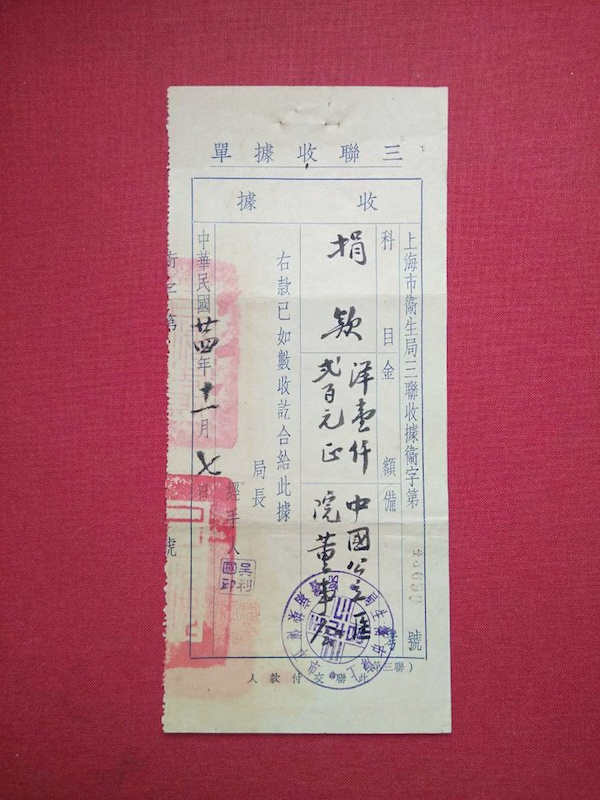 三聯收據單
收據
上海市衞生局三聯收據衞字第 號
科目 金額 備考
捐款 洋壹仟
弍百元正
中國公立醫
院董事会
右款已如數收訖合給此據
局長
經手人
中華民國廿四年十一月七日
字第 號
（第三聯）此聯交付款人